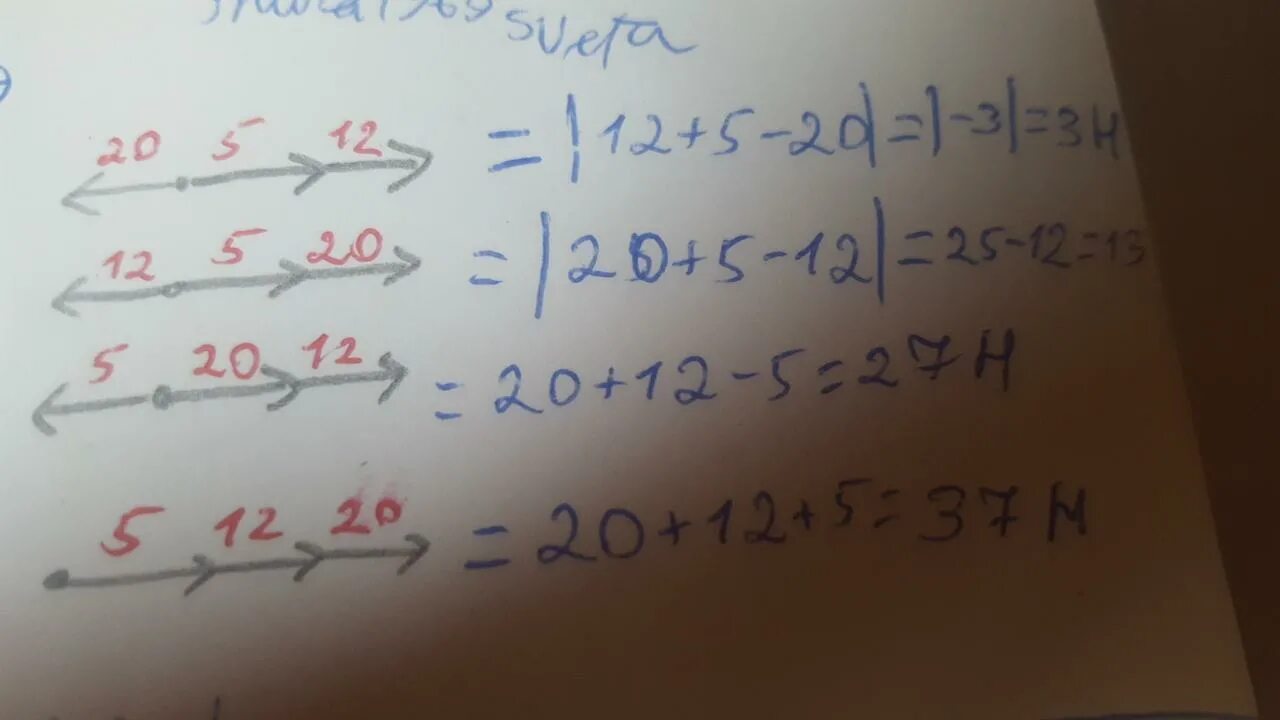 sveta
20 5 12 = |12+5-20|=|-3|=3Н
12 5 20 = |20+5-12|=25-12=13
5 20 12 = 20+12-5=27Н
5 12 20 = 20+12+5=37Н